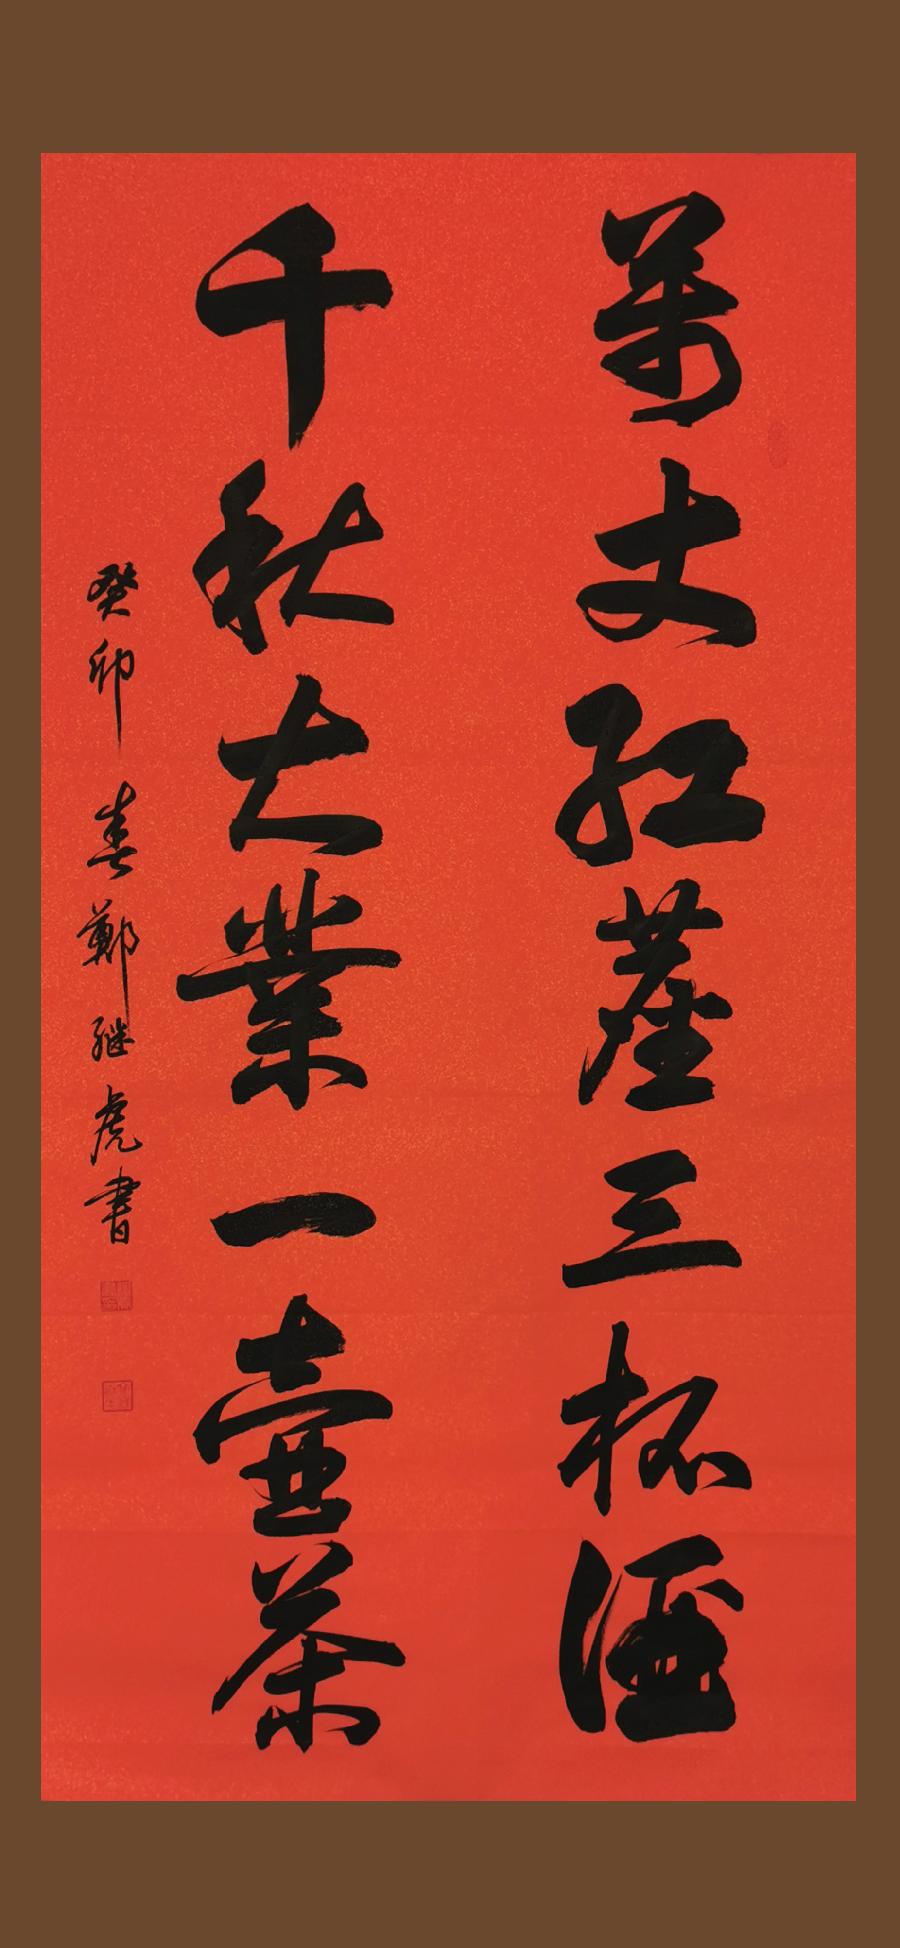 萬丈紅塵三杯酒
千秋大業一壺茶
癸卯春鄭继虎書